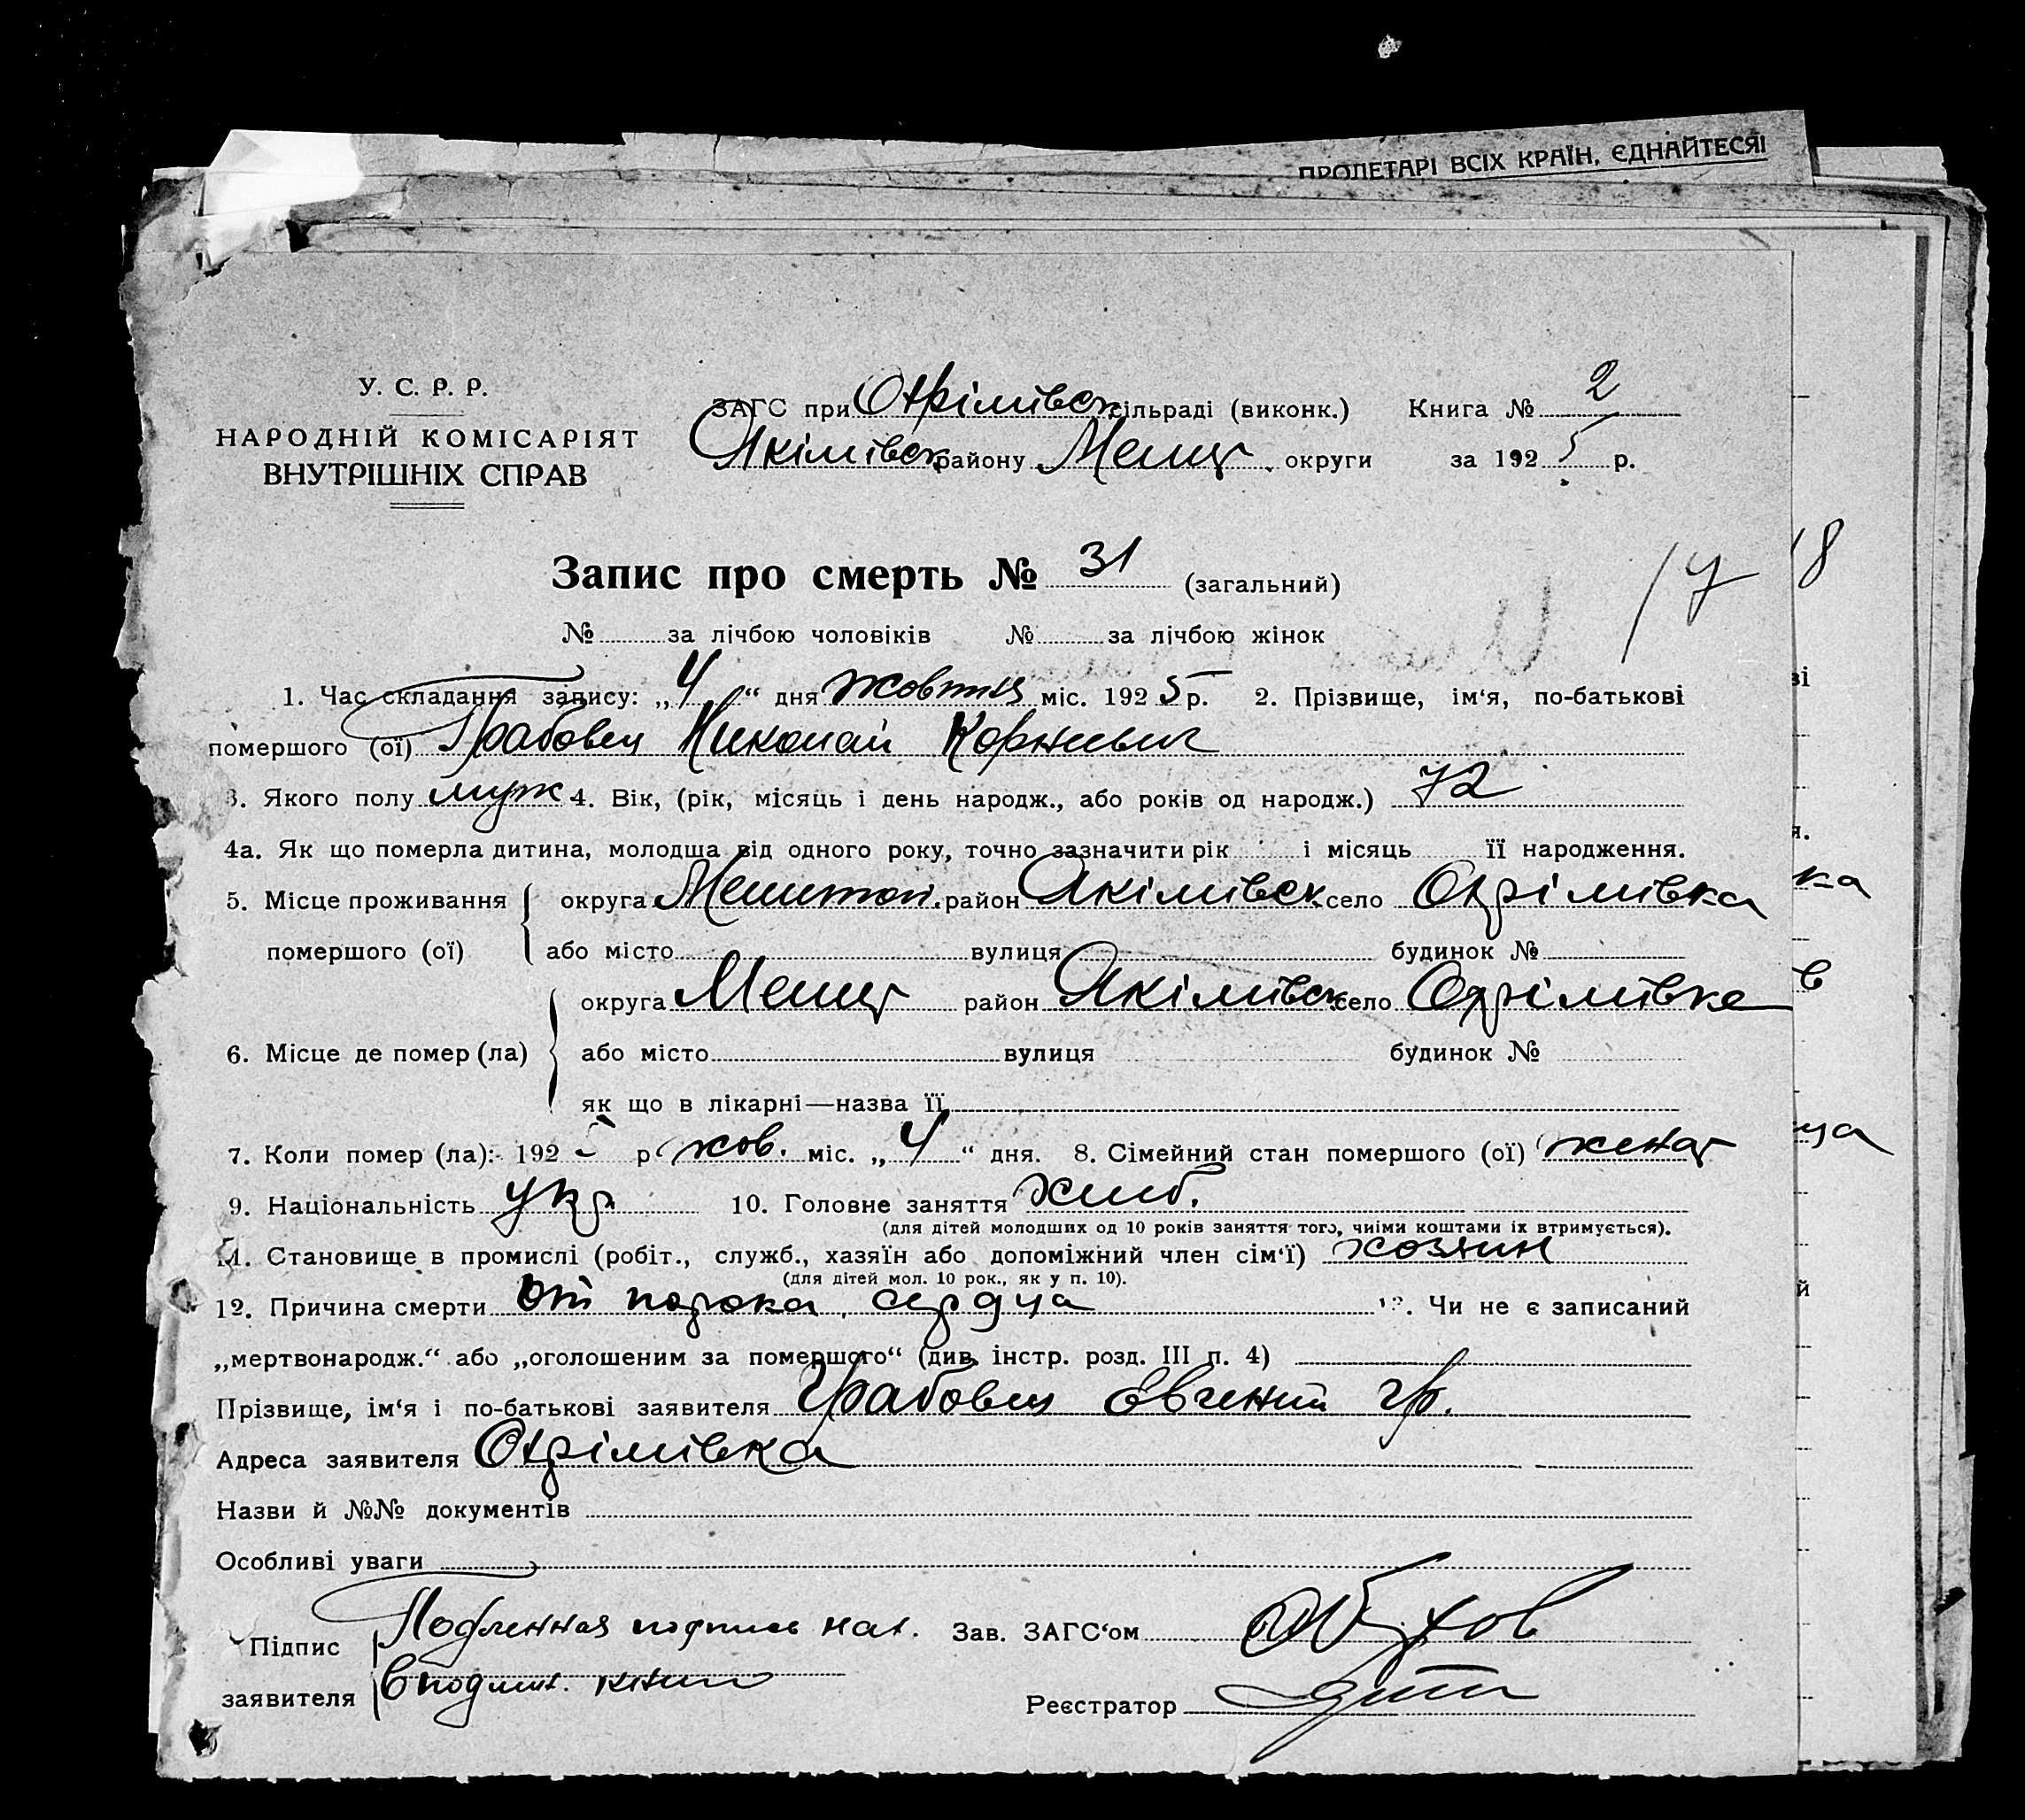 ПРОЛЕТАРІ ВСІХ КРАЇН, ЄДНАЙТЕСЯ!
У. С. Р. Р.
НАРОДНІЙ КОМІСАРІЯТ
ВНУТРІШНІХ СПРАВ
ЗАГС при Охрімівск сільраді (виконк.) Книга № 2
Якімівск району Мелит округи за 1925 р.
Запис про смерть № 31 (загальний)
17 18
№ за лічбою чоловіків № за лічбою жінок
1. Час складання запису: „4“ дня жовтня міс. 1925 р. 2. Прізвище, ім‘я, по-батькові
помершого (ої) Грабовец Николай Корнеевич
3. Якого полу муж 4. Вік, (рік, місяць і день народж., або років од народж.) 72
4а. Як що померла дитина, молодша від одного року, точно зазначити рік і місяць її народження.
5. Місце проживання округа Мелитоп. район Якімівск село Охрімівка
помершого (ої) або місто вулиця будинок №
округа Мелит район Якімівск село Охрімівка
6. Місце де помер (ла) або місто вулиця будинок №
як що в лікарні—назва її
7. Коли помер (ла): 1925 р жов. міс. „4“ дня. 8. Сімейний стан помершого (ої) женат
9. Національність укр 10. Головне заняття хліб.
(для дітей молодших од 10 років заняття того, чиїми коштами їх втримується).
11. Становище в промислі (робіт., служб., хазяїн або допоміжний член сім‘ї) хозяин
(для дітей мол. 10 рок., як у п. 10).
12. Причина смерти от порока сердца 13. Чи не є записаний
„мертвонародж.“ або „оголошеним за помершого“ (див. інстр. розд. III п. 4)
Прізвище, ім‘я і по-батькові заявителя Грабовец Евгений Гр.
Адреса заявителя Охрімівка
Назви й №№ документів
Особливі уваги
Підпис Подленная подпись нах. Зав. ЗАГС‘ом
заявителя в подлин. книге
Реєстратор